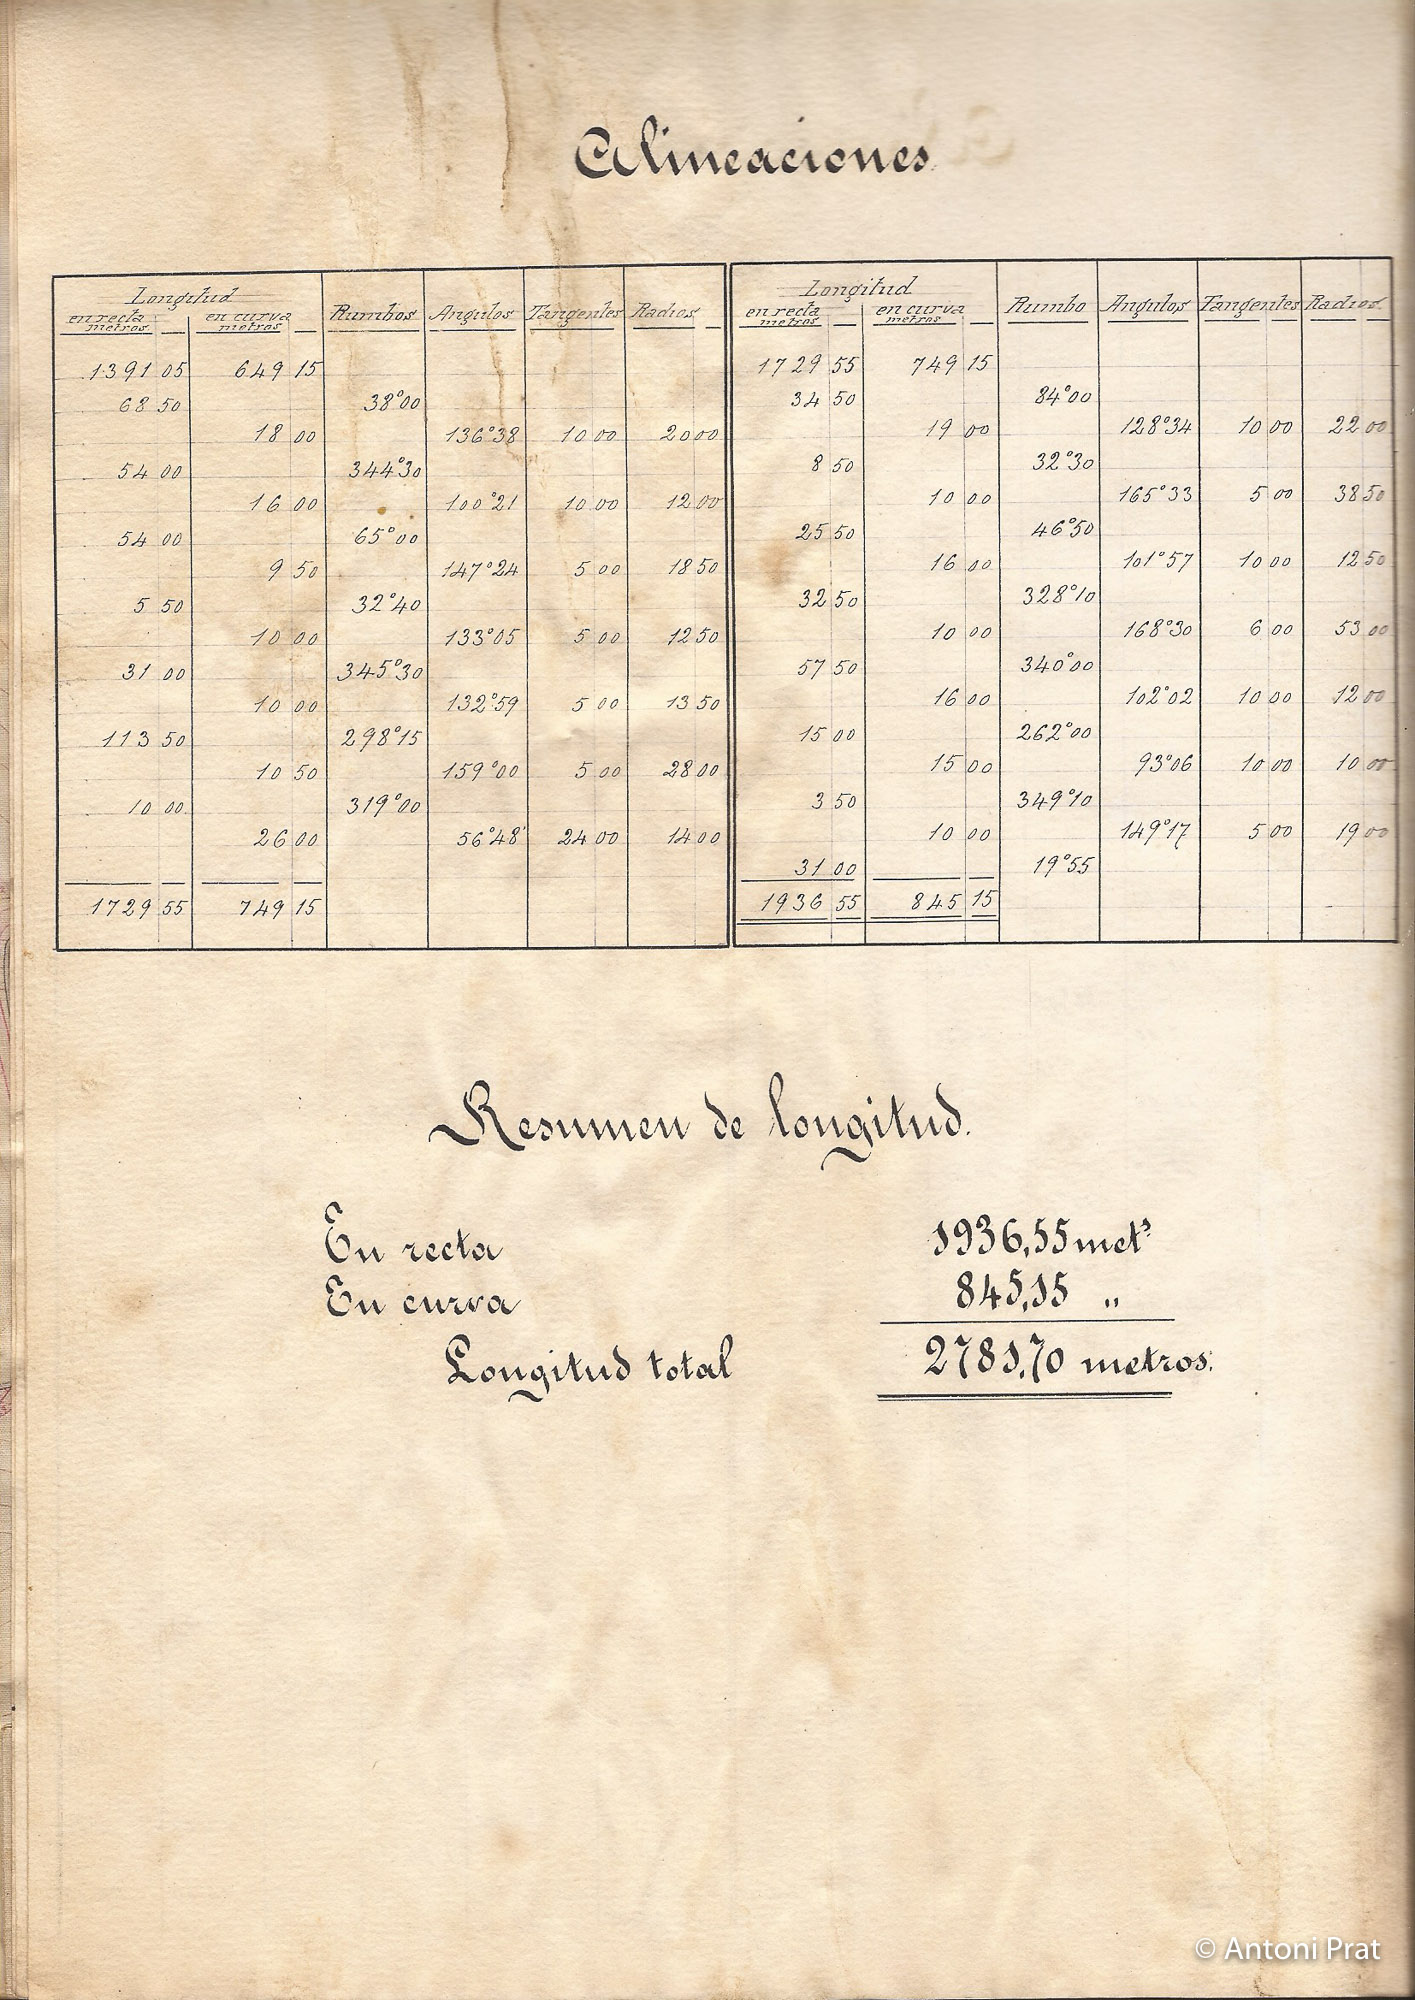 Alineaciones
Longitud
en recta metros en curva metros Rumbos Angulos Tangentes Radios
1391 05 649 15
68 50 38°00
18 00 136°38 10 00 20 00
54 00 344°30
16 00 100°21 10 00 12 00
54 00 65°00
9 50 147°24 5 00 18 50
5 50 32°40
10 00 133°05 5 00 12 50
31 00 345°30
10 00 132°59 5 00 13 50
113 50 298°15
10 50 159°00 5 00 28 00
10 00 319°00
26 00 56°48' 24 00 14 00
1729 55 749 15
Longitud
en recta metros en curva metros Rumbo Angulos Tangentes Radios
1729 55 749 15
34 50 84°00
19 00 128°34 10 00 22 00
8 50 32°30
10 00 165°33 5 00 38 50
25 50 46°50
16 00 101°57 10 00 12 50
32 50 328°10
10 00 168°30 6 00 53 00
57 50 340°00
16 00 102°02 10 00 12 00
15 00 262°00
15 00 93°06 10 00 10 00
3 50 349°10
10 00 149°17 5 00 19 00
31 00 19°55
1936 55 845 15
Resumen de longitud.
En recta 1936,55 metˢ
En curva 845,15 „
Longitud total 2781,70 metros.
© Antoni Prat